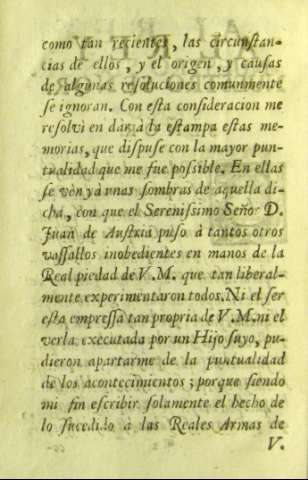 como tan recientes, las circunstan-
cias de ellos, y el origen, y causas
de algunas resoluciones comunmente
se ignoran. Con esta consideracion me
resolvi en dar à la estampa estas me-
morias, que dispuse con la mayor pun-
tualidad que me fue possible. En ellas
se vèn yà unas sombras de aquella di-
cha, con que el Serenissimo Señor D.
Juan de Austria puso à tantos otros
vassallos inobedientes en manos de la
Real piedad de V.M. que tan liberal-
mente experimentaron todos. Ni el ser
esta empressa tan propria de V.M. ni el
verla executada por un Hijo suyo, pu-
dieron apartarme de la puntualidad
de los acontecimientos; porque siendo
mi fin escribir solamente el hecho de
lo sucedido à las Reales Armas de
V.